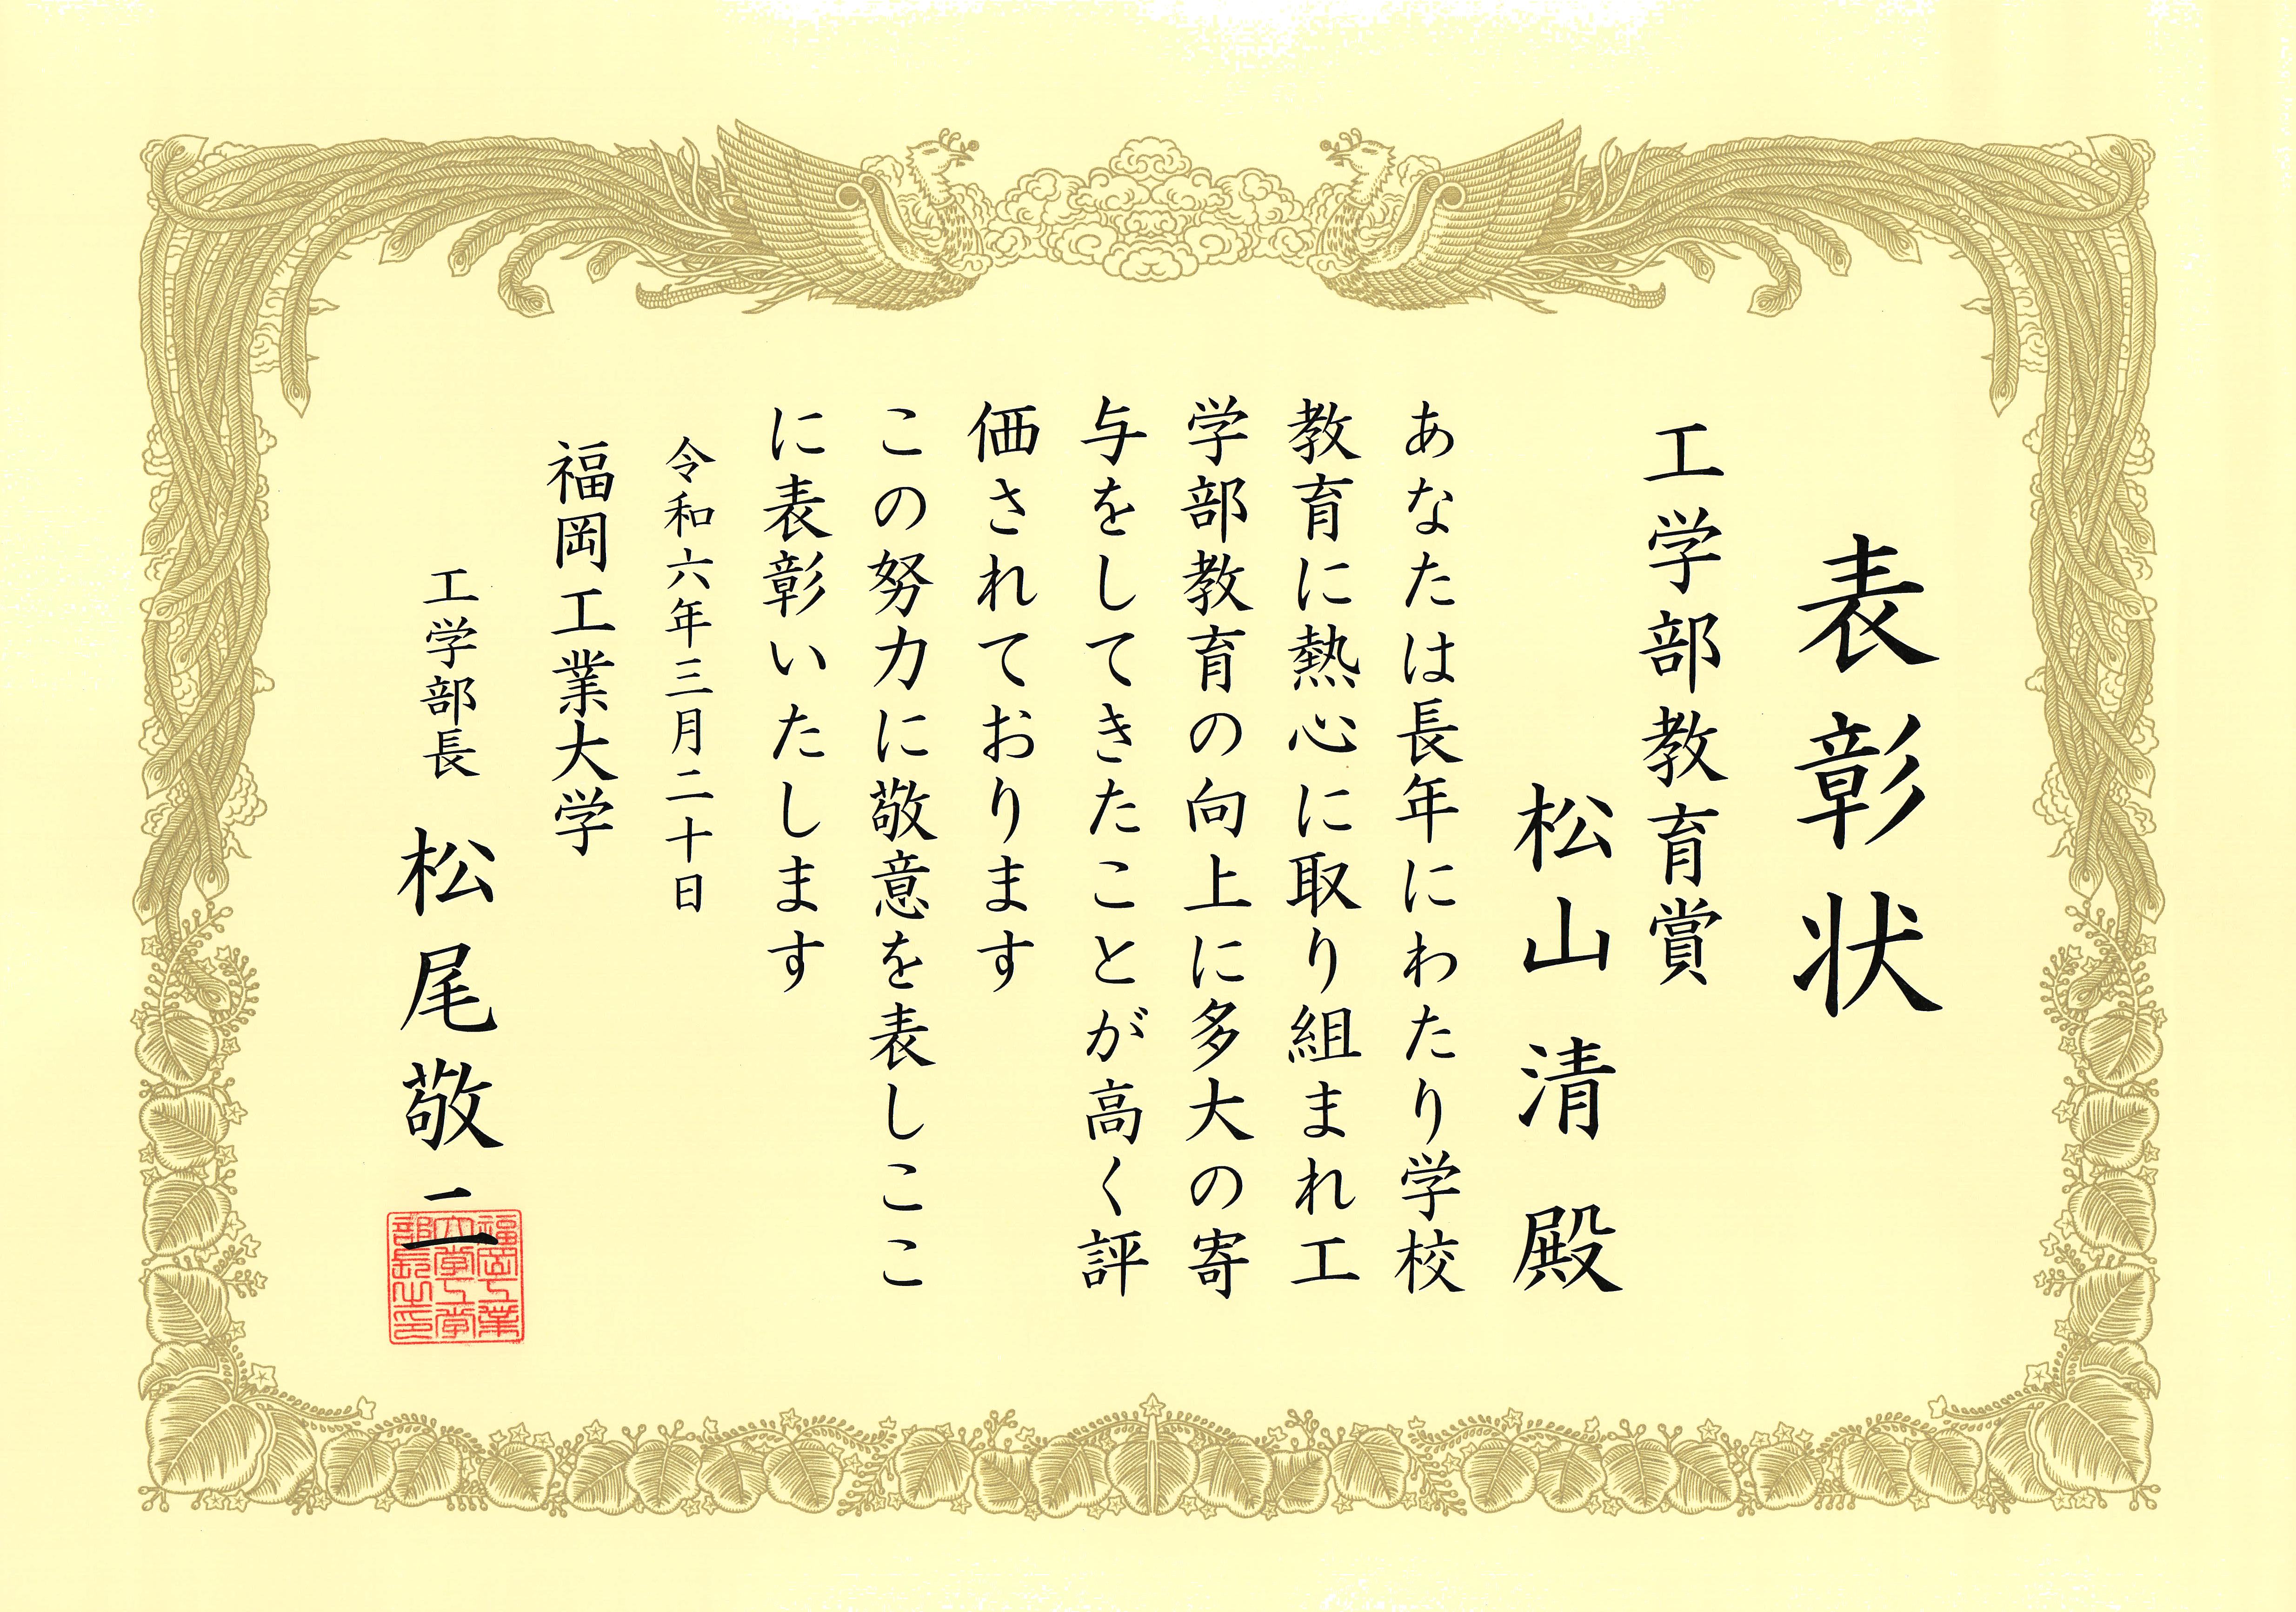 表彰状
工学部教育賞
松山清殿
あなたは長年にわたり学校
教育に熱心に取り組まれ工
学部教育の向上に多大の寄
与をしてきたことが高く評
価されております
この努力に敬意を表しここ
に表彰いたします
令和六年三月二十日
福岡工業大学
工学部長 松尾敬二
福岡工業
大学工学
部長之印